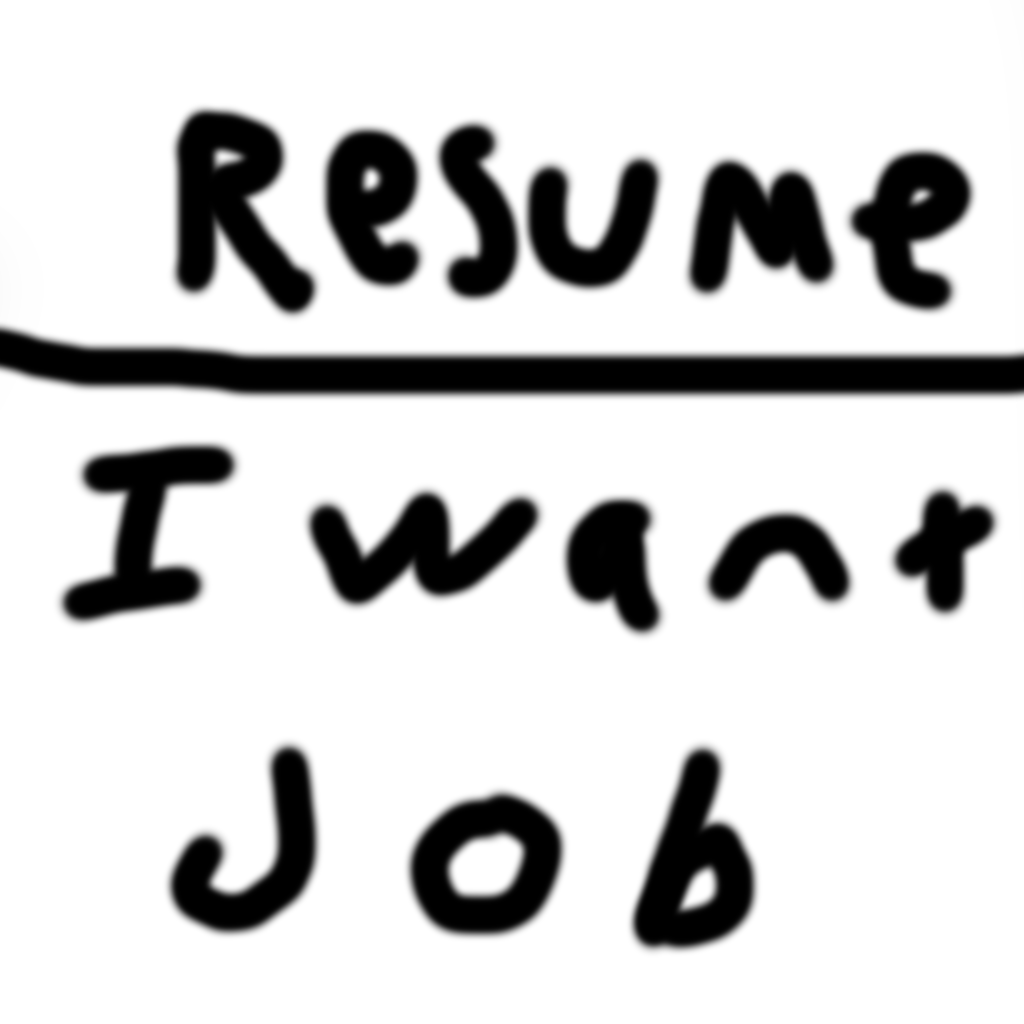 Resume
I want
Job